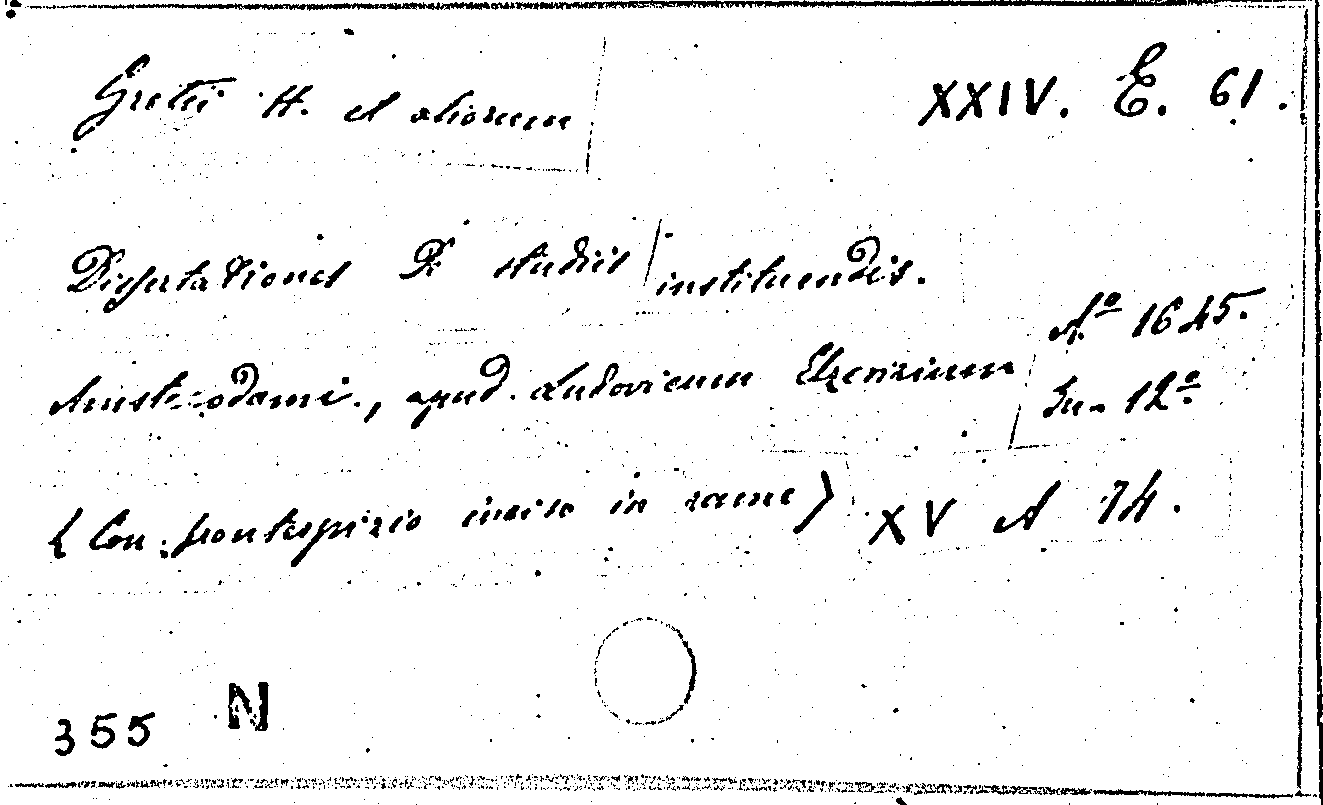 Grotii H. et aliorum XXIV. E. 61.
Dissertationes De studiis instituendis.
Amstelodami., apud Ludovicum Elzevirium Aº 1645.
In-12º
(Con frontespizio inciso in rame) XV A 74.
355 N